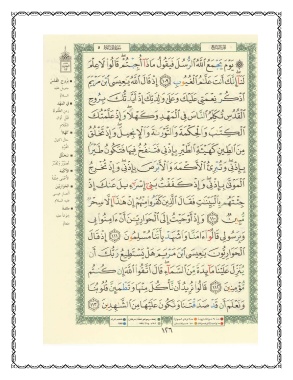 يَوْمَ يَجْمَعُ اللَّهُ الرُّسُلَ فَيَقُولُ مَاذَا أُجِبْتُمْ قَالُوا لَا عِلْمَ
لَنَا إِنَّكَ أَنتَ عَلَّامُ الْغُيُوبِ ١٠٩ إِذْ قَالَ اللَّهُ يَٰعِيسَى ابْنَ مَرْيَمَ
اذْكُرْ نِعْمَتِي عَلَيْكَ وَعَلَىٰ وَٰلِدَتِكَ إِذْ أَيَّدتُّكَ بِرُوحِ
الْقُدُسِ تُكَلِّمُ النَّاسَ فِي الْمَهْدِ وَكَهْلًا وَإِذْ عَلَّمْتُكَ
الْكِتَٰبَ وَالْحِكْمَةَ وَالتَّوْرَىٰةَ وَالْإِنجِيلَ وَإِذْ تَخْلُقُ
مِنَ الطِّينِ كَهَيْـَٔةِ الطَّيْرِ بِإِذْنِي فَتَنفُخُ فِيهَا فَتَكُونُ طَيْرًا
بِإِذْنِي وَتُبْرِئُ الْأَكْمَهَ وَالْأَبْرَصَ بِإِذْنِي وَإِذْ تُخْرِجُ
الْمَوْتَىٰ بِإِذْنِي وَإِذْ كَفَفْتُ بَنِي إِسْرَٰٓءِيلَ عَنكَ إِذْ
جِئْتَهُم بِالْبَيِّنَٰتِ فَقَالَ الَّذِينَ كَفَرُوا مِنْهُمْ إِنْ هَٰذَا إِلَّا سِحْرٌ
مُّبِينٌ ١١٠ وَإِذْ أَوْحَيْتُ إِلَى الْحَوَارِيِّـۧنَ أَنْ ءَامِنُوا بِي
وَبِرَسُولِي قَالُوا ءَامَنَّا وَاشْهَدْ بِأَنَّنَا مُسْلِمُونَ ١١١ إِذْ قَالَ
الْحَوَارِيُّونَ يَٰعِيسَى ابْنَ مَرْيَمَ هَلْ يَسْتَطِيعُ رَبُّكَ أَن
يُنَزِّلَ عَلَيْنَا مَائِدَةً مِّنَ السَّمَاءِ قَالَ اتَّقُوا اللَّهَ إِن كُنتُم
مُّؤْمِنِينَ ١١٢ قَالُوا نُرِيدُ أَن نَّأْكُلَ مِنْهَا وَتَطْمَئِنَّ قُلُوبُنَا
وَنَعْلَمَ أَن قَدْ صَدَقْتَنَا وَنَكُونَ عَلَيْهَا مِنَ الشَّٰهِدِينَ ١١٣
١٢٦